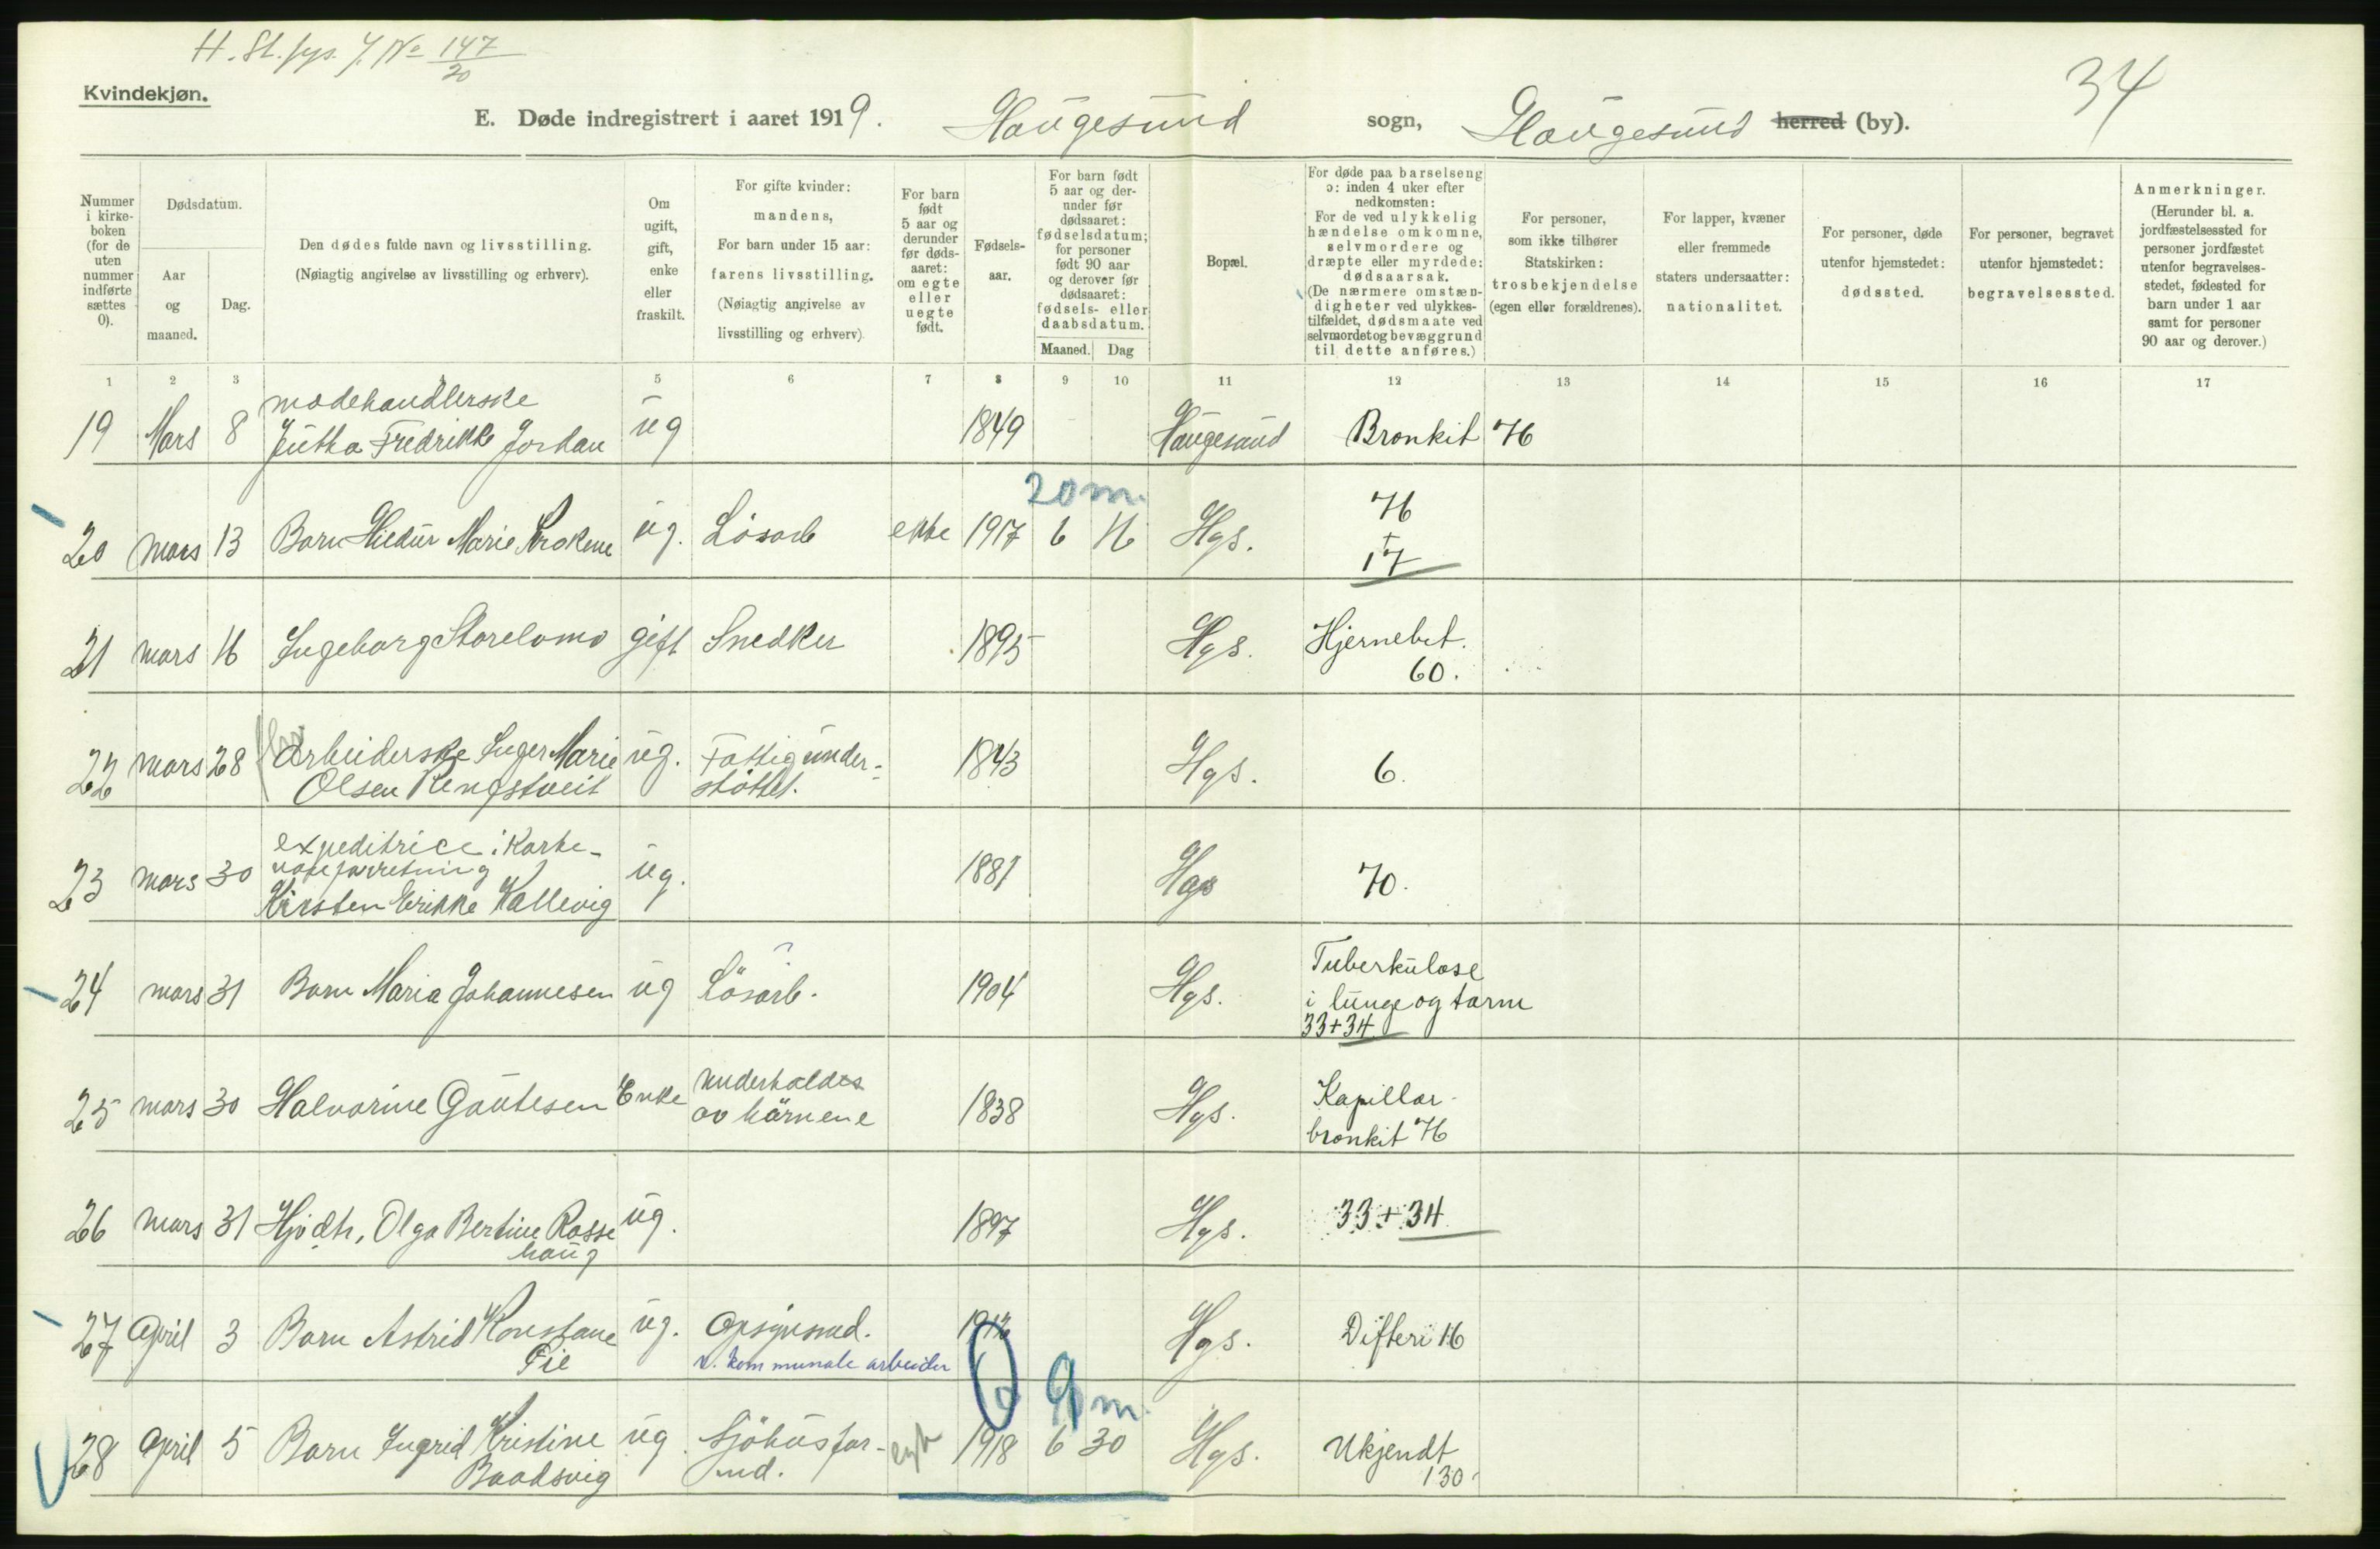 H. St. fys. J. No 147/20
34
Kvindekjøn.
E. Døde indregistrert i aaret 1919. Haugesund sogn, Haugesund herred (by).
Nummer i kirkeboken (for de uten nummer indførte sættes 0).
Dødsdatum.
Aar og maaned.
Dag.
Den dødes fulde navn og livsstilling.
(Nøiagtig angivelse av livsstilling og erhverv).
Om ugift, gift, enke eller fraskilt.
For gifte kvinder: mandens,
For barn under 15 aar: farens livsstilling.
(Nøiagtig angivelse av livsstilling og erhverv)
For barn født 5 aar og derunder før dødsaaret: om egte eller uegte født.
Fødselsaar.
For barn født 5 aar og derunder før dødsaaret: fødselsdatum; for personer født 90 aar og derover før dødsaaret: fødsels- eller daabsdatum.
Maaned. Dag
Bopæl.
For døde paa barselseng ɔ: inden 4 uker efter nedkomsten:
For de ved ulykkelig hændelse omkomne, selvmordere og dræpte eller myrdede: dødsaarsak.
(De nærmere omstændigheter ved ulykkestilfældet, dødsmaate ved selvmordet og bevæggrund til dette anføres.)
For personer, som ikke tilhører Statskirken: trosbekjendelse (egen eller forældrenes).
For lapper, kvæner eller fremmede staters undersaatter: nationalitet.
For personer, døde utenfor hjemstedet: dødssted.
For personer, begravet utenfor hjemstedet: begravelsessted.
Anmerkninger.
(Herunder bl. a. jordfæstelsessted for personer jordfæstet utenfor begravelsesstedet, fødested for barn under 1 aar samt for personer 90 aar og derover.)
1 2 3 4 5 6 7 8 9 10 11 12 13 14 15 16 17
modehandlerske
19 Mars 8 Jutha Fredrikke Jordan ug 1849 Haugesund Bronkit 76
20 m.
20 mars 13 Barn Marie Krokene ug. Lösarb ekte 1917 6 16 Hgs. 76 + 17
21 mars 16 Ingeborg Storelomo gift Snedker 1895 Hgs. Hjernebet. 60.
22 mars 28 Arbeiderske Inger Marie ug. Fattigunder- 1843 Hgs. 6.
Olsen Rengstveit støttet.
expeditrice i Korte-
vareforretning
23 mars 30 Kirsten Erikke Kallevig ug. 1881 Hgs 70.
24 mars 31 Barn Maria Johannesen ug Lösarb. 1904 Hgs. Tuberkulose
i lunge og tarm
33+34
25 mars 30 Halvarine Gautesen Enke Underholdes 1838 Hgs. Kapillar-
av börnene bronkit 76
26 mars 31 Hjv dtr, Olga Bertine Rosse ug. 1897 Hgs. 33 + 34
haug
27 April 3 Barn Astrid Konstane ug. Opsynsmd. 1912 Hgs. Difteri 16
Pie v. kommunale arbeider
6 9 m.
28 April 5 Barn Ingrid Kristine ug. Sjöhusfor- egte 1918 6 30 Hgs. Ukjendt
Baadsvig md. 130.